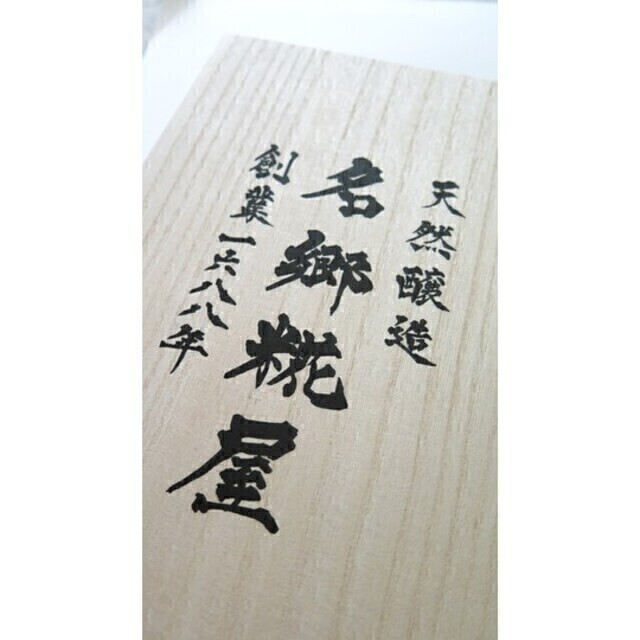 天然醸造
名郷糀屋
創業一六八八年